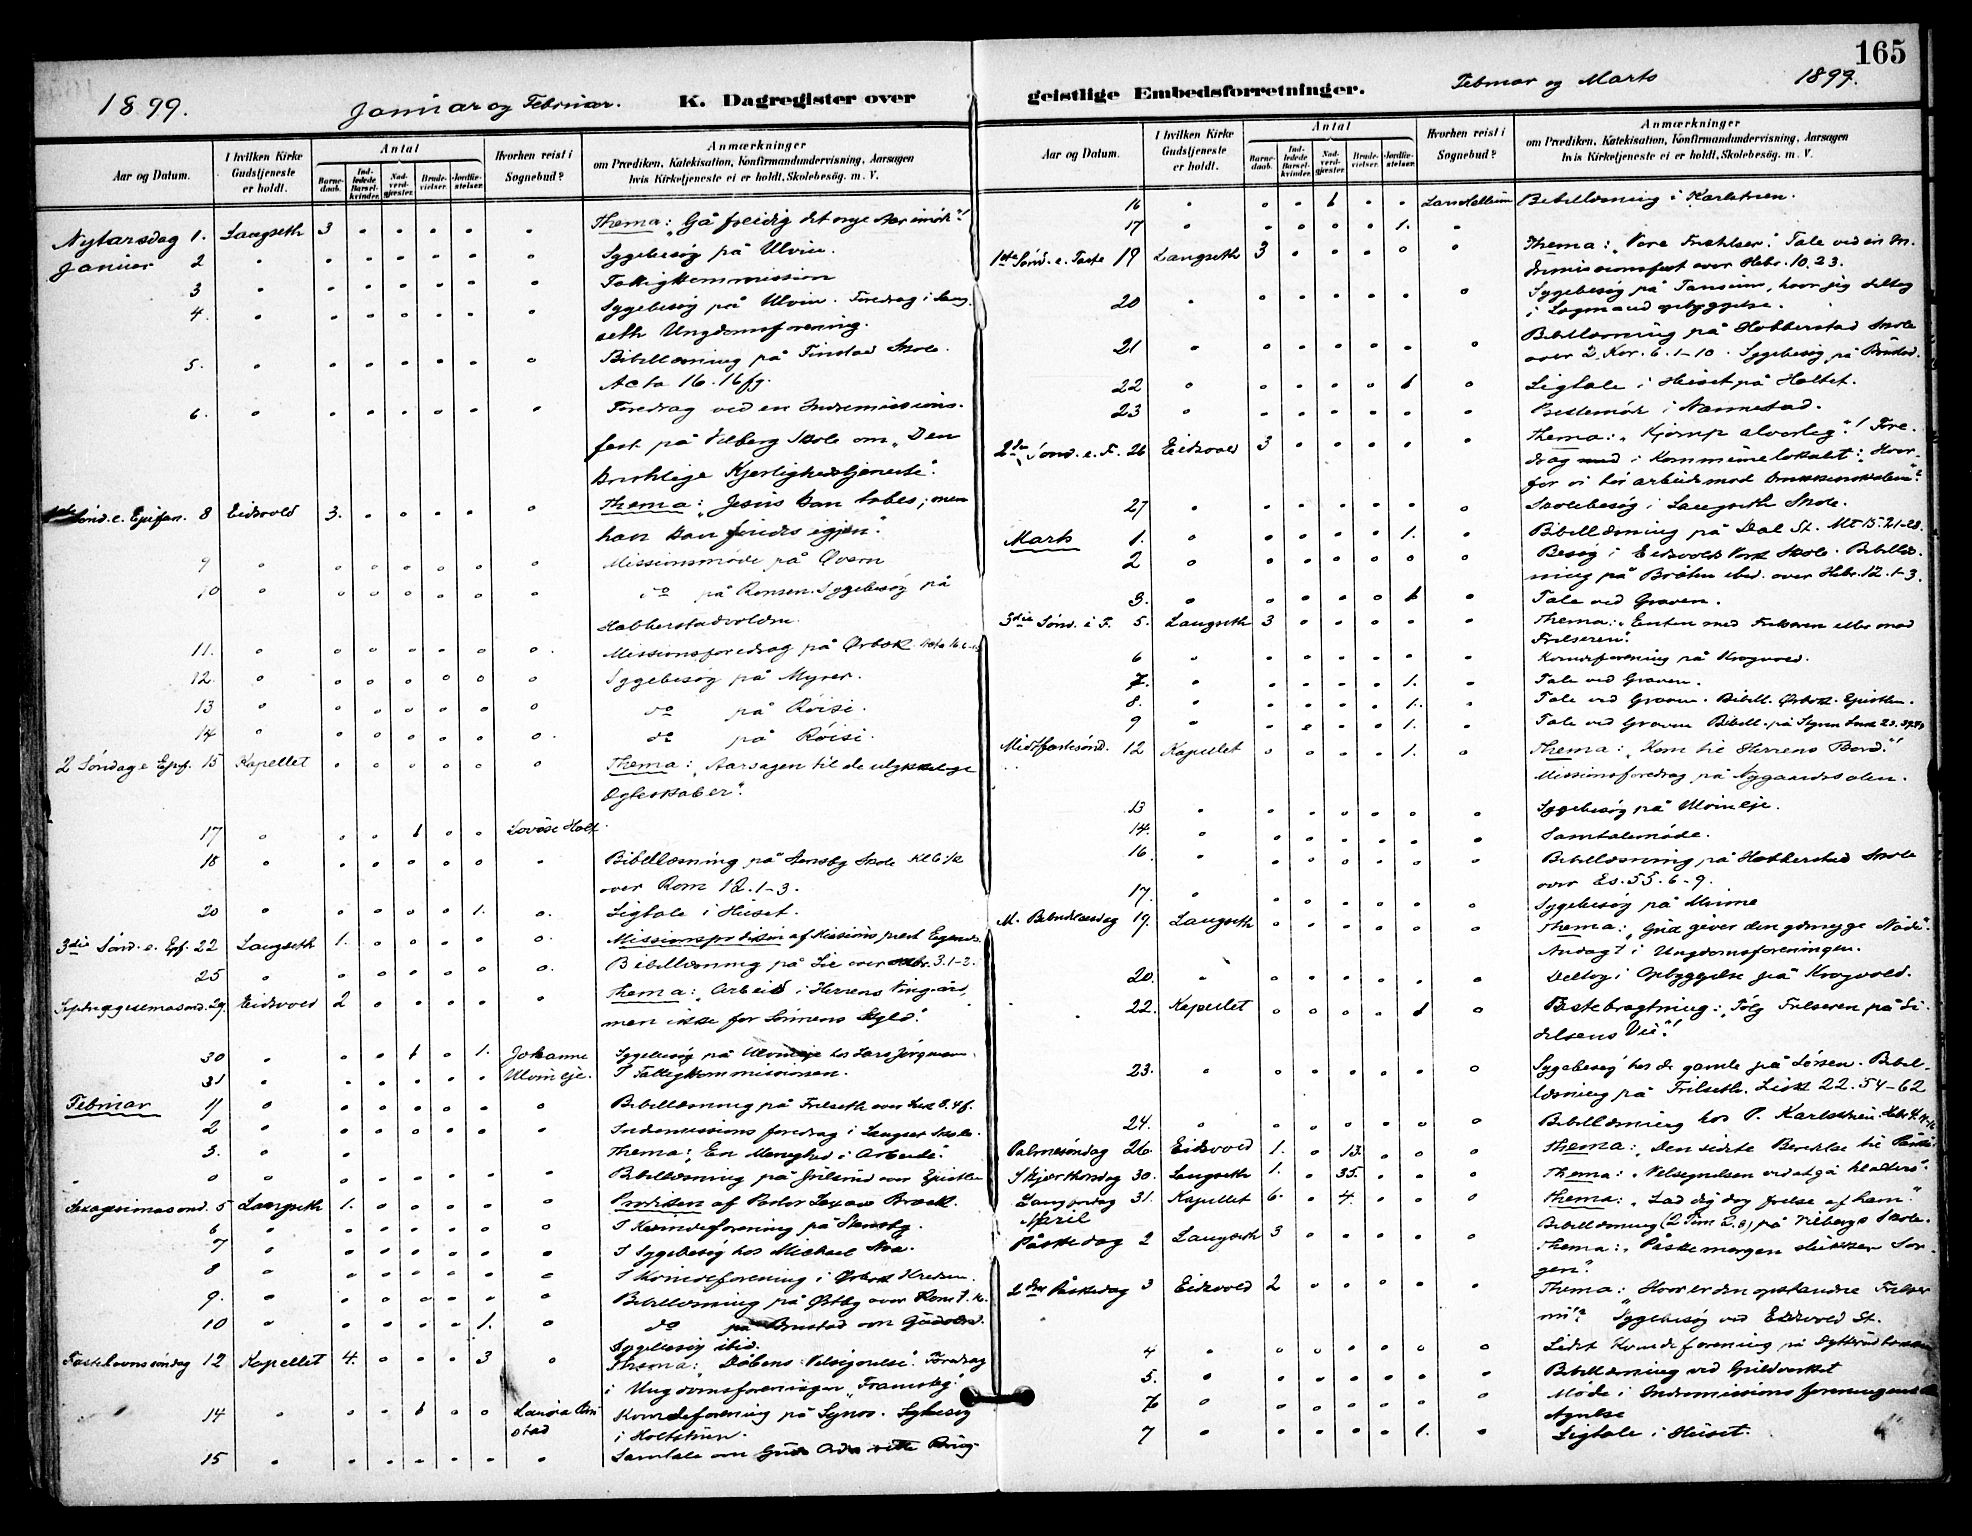 165
1899.
Januar og Februar.
K. Dagregister over
geistlige Embedsforretninger.
Februar og Marts
1899.
Aar og Datum.
I hvilken Kirke Gudstjeneste er holdt.
Antal
Barnedaab.
Indledede Barselkvinder.
Nadverdgjester.
Brudevielser.
Jordfæstelser.
Hvorhen reist i Sognebud?
Anmærkninger
om Prædiken, Katekisation, Konfirmandundervisning, Aarsagen
hvis Kirketjeneste ei er holdt, Skolebesøg. m. V.
Nytarsdag 1. Langseth 3 Thema: "Gå freidig det nye Aar imöde"!
Januar 2 Sygebesög på Ulvin.
3 Fattigkommission
4. Sygebesög på Ulvin. Foredrag i Lang-
seth Ungdomsforening.
5. Bibellæsning på Finstad Skole.
Acta 16.16fg.
6. Foredrag ved en Indremissions-
fest på Vilberg Skole om "Den
kristelige Kjerlighedstjeneste".
1ste Sønd. e. Epifan. 8 Eidsvold 3. Thema: "Jesus kan tabes; men
han kan findes igjen".
9 Missionsmöde på
10 do på Ronsen. Sygebesög på
Habberstadvolden.
11. Missionsforedrag på Ørbæk
12. Sygebesög på Myrer.
13 do på Röisi.
14 do på Röisi.
2 Søndag e. Epf. 15 Kapellet Thema: "Aarsagen til de ulykkelige
Ægteskaber".
17 1 Lovise Holt.
18 Bibellæsning på Stensby Skole
over Rom 12.1-3.
20 1. Ligtale i Huset.
3die Sønd. e. Epf. 22 Langseth 1. Missionsprædiken af Missionsprest
25 Bibellæsning på Lie over 3.1-2.
Septuagesimasönd. 29. Eidsvold 2 Thema: "Arbeid i Herrens Vingård,
men ikke for Lönnens Skyld".
30 1 1. Johanne Sygebesög på Ulvineje hos Lars Jörgensen.
31 Ulvineje. I Fattigkommissionen.
Februar 1 Bibellæsning på Frilseth over Luk 8.4f.
2 Indremissionsforedrag i Langset Skole.
3. Thema: "En Menighed i Arbeide".
Bibellæsning på over Epistlen
Sexagesimasönd. 5 Langseth 1. Prædiken af Pastor
6 I Kvindeforening på Stensby.
7 I Sygebesög hos Michael
8 I Kvindeforening i Ørbæk Kredsen.
9. Bibellæsning på Østby over Rom
10 1. do på Brustad om
Sygebesög ibid.
Fastelavnssöndag 12 Kapellet 4. 3 Thema: "Dåbens Velsignelse". Foredrag
i Ungdomsforeningen "Framsteg".
14 1 Laura Bru- Kvindeforening på Sygebesög
stad i Holtstuen.
15 Samtale om Guds Ords rette Brug.
16 1 Lars Bibellæsning i Karlstuen.
17 1.
1ste Sønd. e. Faste 19 Langseth 3 Thema: "Vore Fristelser". Tale ved en In-
dremissionsfest over Hebr. 10.23.
20 Sygebesög på hvor jeg deltog
i opbyggelse.
21 Bibellæsning på Habberstad Skole
over 2 Kor. 6.1-10. Sygebesög på
22 1 Ligtale i Huset på Holtet.
23 Prestemöde i Nannestad.
2den Sønd. e. F. 26 Eidsvold 3 Thema: "Kjæmp alvorlig"! Fore-
drag i Kommunelokalet: "Hvor-
for vi bör arbeide mod Drukkenskaben"?
27 Skolebesög i Langseth Skole.
Marts 1. 1. Bibellæsning på Dal St. Mt 15.21-28.
2 Besög i Eidsvold Værk Skole. Bibellæs-
ning på Bråten ibid. over Hebr. 12.1-3.
3. 1 Tale ved Graven.
3die Sønd. i F. 5. Langseth 3 Thema: "Enten med Frelseren eller mod
Frelseren".
6 Kvindeforening på Krogvold.
7. 1. Tale ved Graven.
8. 1. Tale ved Graven. Bibell. Ørbæk. Epistlen.
9 1. Tale ved Graven Bibell. på
Midtfastesönd. 12 Kapellet 1. Thema: "Kom til Herrens Bord"!
Missionsforedrag på Nygaardssalen.
13 Sygebesög på Ulvineje.
14. Samtalemöde.
16. Bibellæsning på Habberstad Skole
over Es. 55.6-9.
17. Sygebesög på
M. Bebudelsesdag 19. Langseth Thema: "Gud giver den ydmyge Nåde".
Andagt i Ungdomsforeningen.
20. Deltog i Opbyggelse på Krogvold.
22. Kapellet 1 Fastebetragtning: "Fölg Frelseren på Li-
delsens Vei"!
23. Sygebesög hos de gamle på Sörsen. Bibel-
læsning på Frilseth. Luk 22.54-62
24. Bibellæsning hos P. Karlstuen.
Palmesöndag 26. Eidsvold 1. 13. Thema: "Den sidste Berettelse til
Skjærthorsdag 30. Langseth 1. 35. Thema: "Velsignelsen ved at gå til Alters".
Langfredag 31. Kapellet 6. 4. Thema: "Lad dig dog frelse af ham".
April Bibellæsning (2 Tim 2.8) på Vilbergs Skole.
Påskedag 2 Langseth 3 Thema: "Påskemorgen slukker Sor-
gen".
2den Påskedag 3 Eidsvold 2 Thema: "Hvor er den opstandne Frelser
nu"? Sygebesög ved Eidsvold St.
4 Ledet Kvindeforening på
5. Bibellæsning ved
6 Möde i Indremissionsforeningens
7 1. Ligtale i Huset.